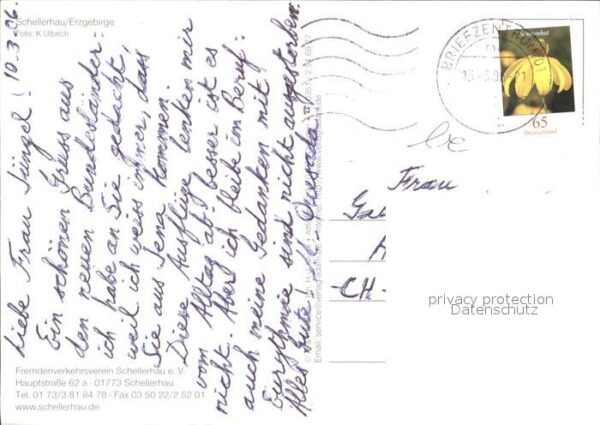 Schellerhau/Erzgebirge
Foto: K Ulbrich
10.3.06.
Liebe Frau Jüngel!
Ein schönen Gruss aus
den neuen Bundesländer:
ich habe an Sie gedacht,
weil ich weiss immer, dass
Sie aus Jena kommen.
Diese Ausflüge lenken mir
vom Alltag ab: besser ist es
nicht. Aber ich bleibe im Beruf:
auch meine Gedanken mit
Eurythmie sind nicht ausgestorben.
Alles Gute!
Fremdenverkehrsverein Schellerhau e. V.
Hauptstraße 62 a - 01773 Schellerhau
Tel. 01 73/3 81 84 78 - Fax 03 50 22/2 52 01
www.schellerhau.de
BRIEFZENTRUM
65
Deutschland
Frau
CH-
privacy protection
Datenschutz